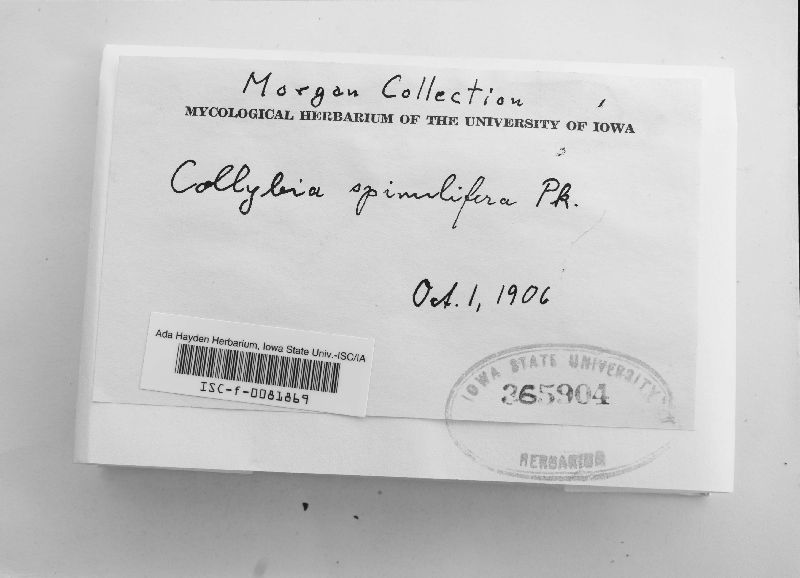 Morgan Collection
MYCOLOGICAL HERBARIUM OF THE UNIVERSITY OF IOWA
Collybia spinulifera Pk.
Oct. 1, 1906
Ada Hayden Herbarium, Iowa State Univ.-ISC/IA
ISC-f-0081869
IOWA STATE UNIVERSITY
365904
HERBARIUM